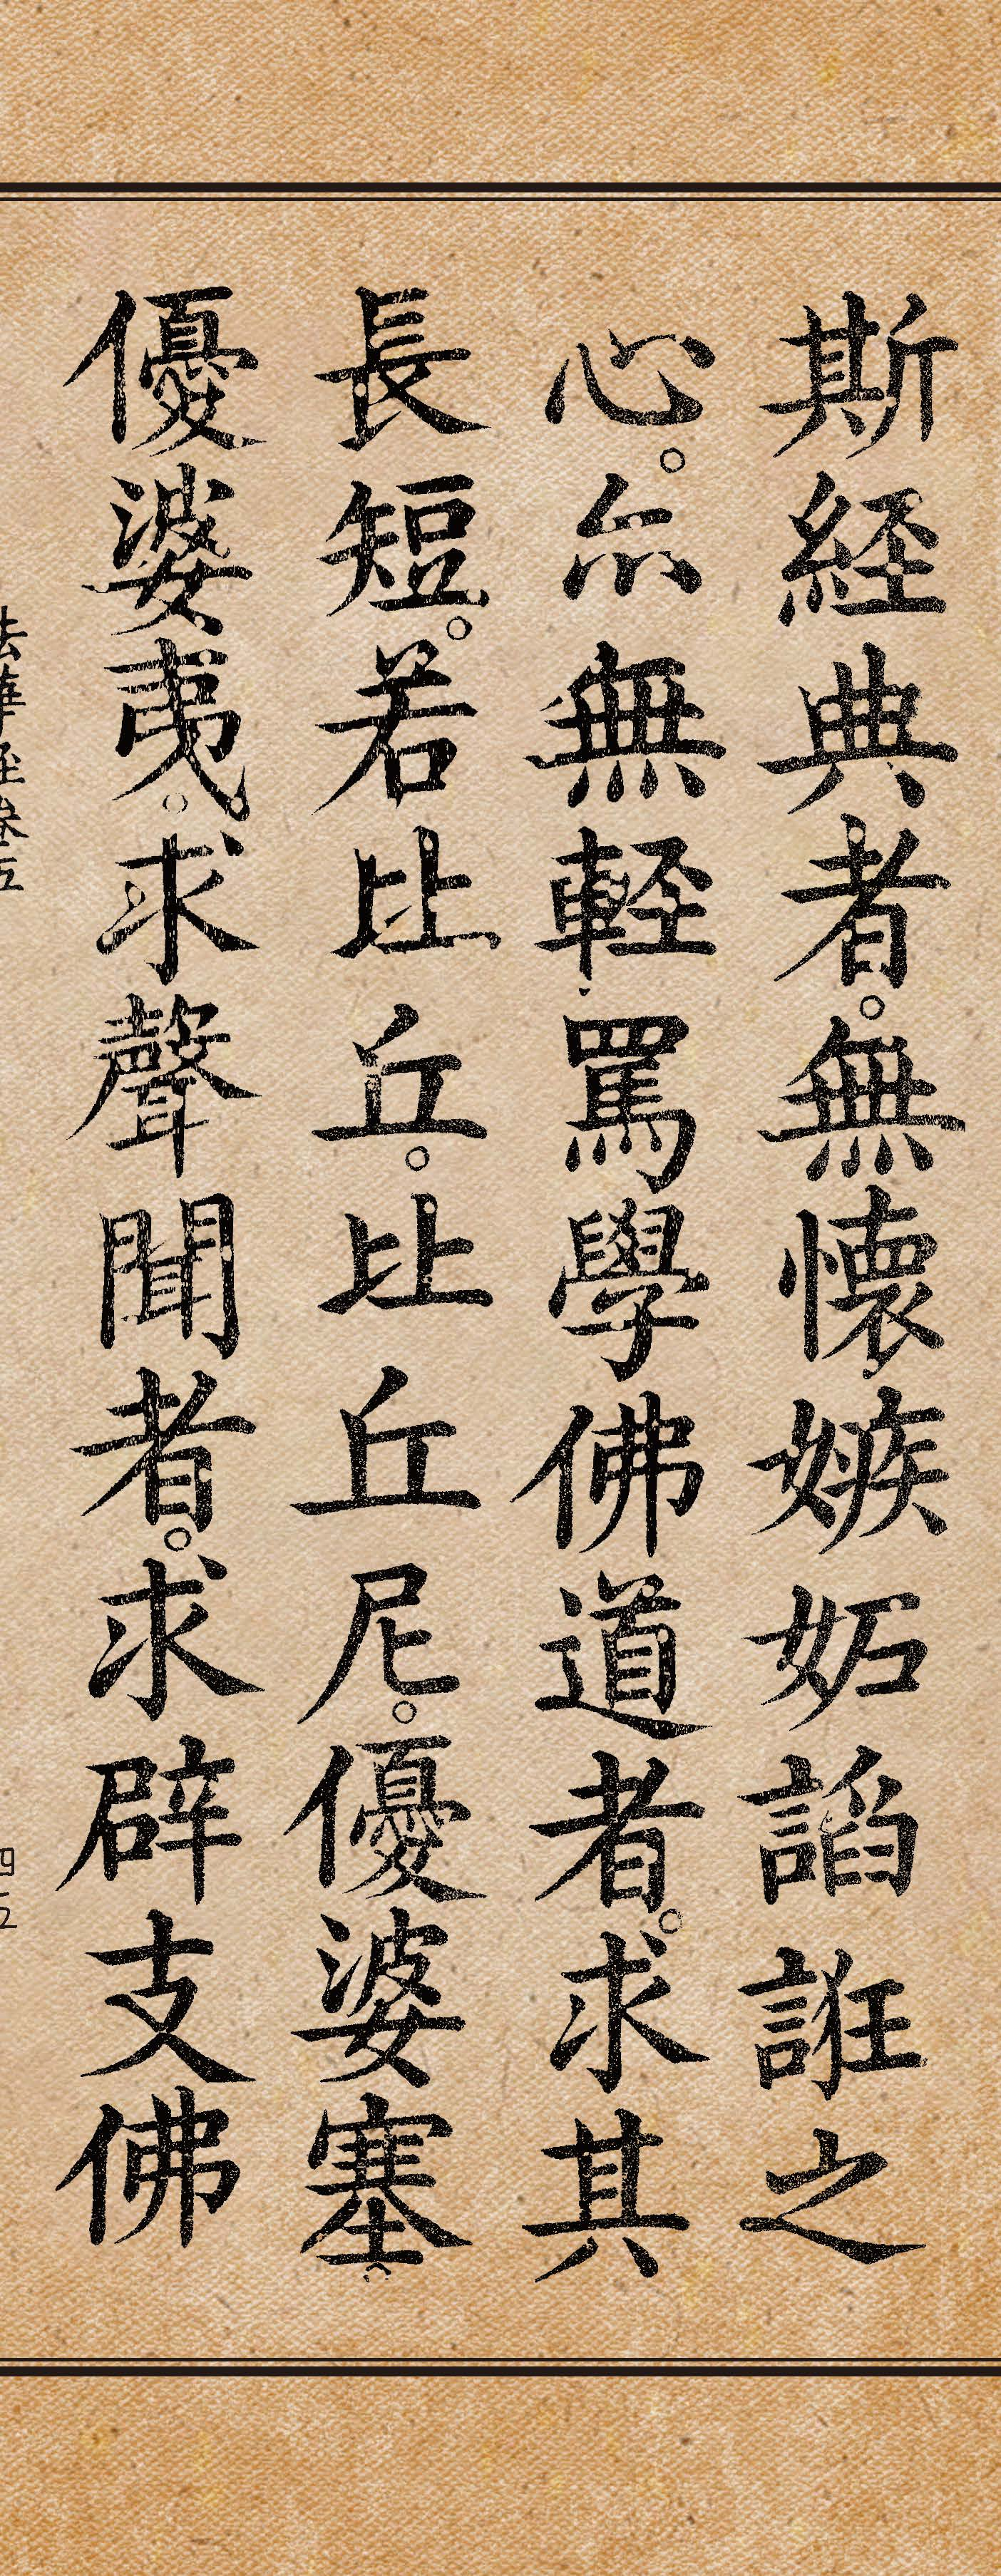 斯経典者。無懷嫉妬諂誑之
心。亦無輕罵學佛道者。求其
長短。若比丘。比丘尼。優婆塞。
優婆夷。求聲聞者。求辟支佛